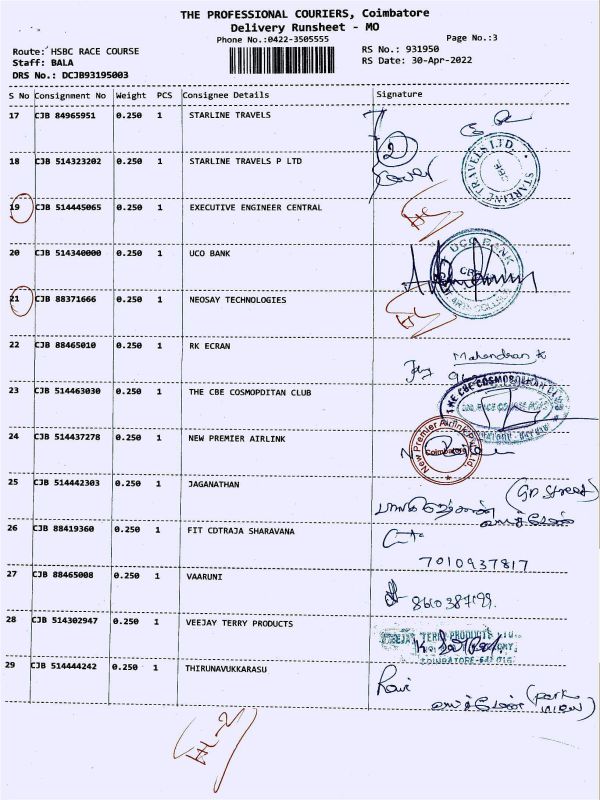 THE PROFESSIONAL COURIERS, Coimbatore
Delivery Runsheet - MO
Phone No.:0422-3505555
Page No.:3
Route: HSBC RACE COURSE
RS No.: 931950
Staff: BALA
RS Date: 30-Apr-2022
DRS No.: DCJB93195003
S No Consignment No Weight PCS Consignee Details Signature
17 CJB 84965951 0.250 1 STARLINE TRAVELS
2
Cover
STARLINE TRAVELS LTD. CBE
18 CJB 514323202 0.250 1 STARLINE TRAVELS P LTD
19 CJB 514445065 0.250 1 EXECUTIVE ENGINEER CENTRAL
20 CJB 514340000 0.250 1 UCO BANK
UCO BANK
21 CJB 88371666 0.250 1 NEOSAY TECHNOLOGIES
22 CJB 88465010 0.250 1 RK ECRAN
Mahendran K
23 CJB 514463030 0.250 1 THE CBE COSMOPDITAN CLUB
THE CBE COSMOPOLITAN CLUB
24 CJB 514437278 0.250 1 NEW PREMIER AIRLINK
New Premier Airlink Pvt. Ltd.
Coimbatore
25 CJB 514442303 0.250 1 JAGANATHAN
(GD Street)
26 CJB 88419360 0.250 1 FIT CDTRAJA SHARAVANA
7010937817
27 CJB 88465008 0.250 1 VAARUNI
28 CJB 514302947 0.250 1 VEEJAY TERRY PRODUCTS
VEEJAY TERRY PRODUCTS LTD.
COIMBATORE-641 016
29 CJB 514444242 0.250 1 THIRUNAVUKKARASU
Ravi
(park view)